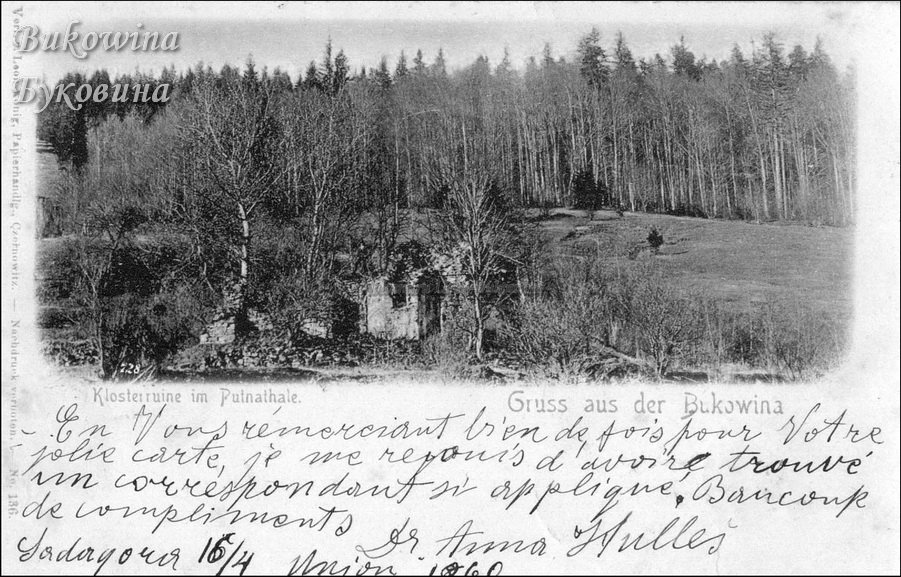 Bukowina
Буковина
Verlag Leon König, Papierhandlg., Czernowitz. — Nachdruck verboten. No. 136.
128
Klosterruine im Putnathale.
Gruss aus der Bukowina
En Vous rémerciant bien de fois pour Votre
jolie carte, je me rejouis d'avoire trouvé
un corréspondant si appliqué. Baucoup
de compliments
Dr Anna
Sadagora 16/4 Union